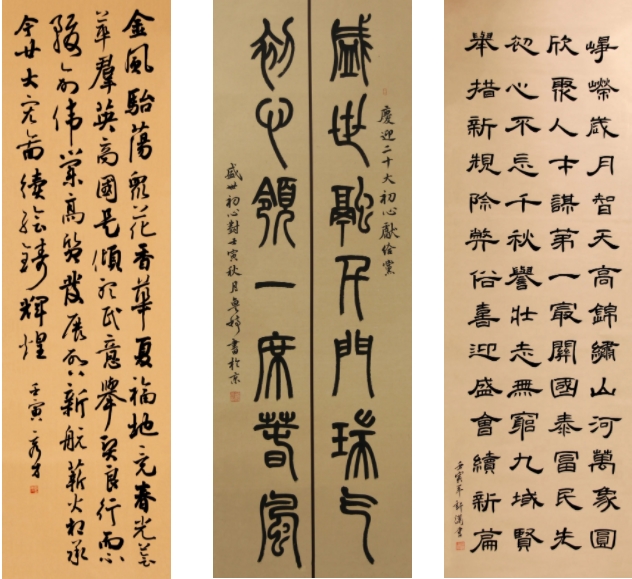 金風駘蕩眾花香華夏福地春光
群英高國是傾听民意舉賢良行而不
前伟業高質發展新航薪火相承
今廿大宏圖續繪鑄輝煌
壬寅
慶迎二十大初心獻給黨
盛世融尺門瑞气
初心領一席春風
盛世初心對壬寅秋月書於京
崢嶸歲月智天高錦繡山河萬象圓
欣聚人才謀第一最關國泰富民先
初心不忘千秋譽壯志無窮九域賢
舉措新規除弊俗喜迎盛會續新篇
壬寅年許書